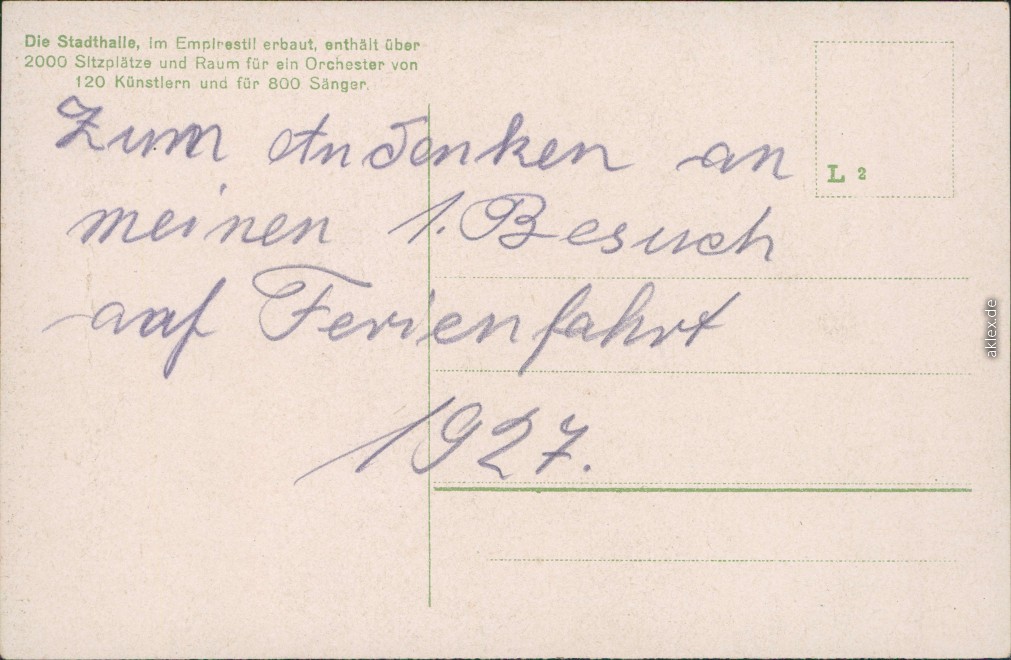 Die Stadthalle, im Empirestil erbaut, enthält über
2000 Sitzplätze und Raum für ein Orchester von
120 Künstlern und für 800 Sänger.
L 2
Zum Andenken an
meinen 1. Besuch
auf Ferienfahrt
1927.
aklex.de